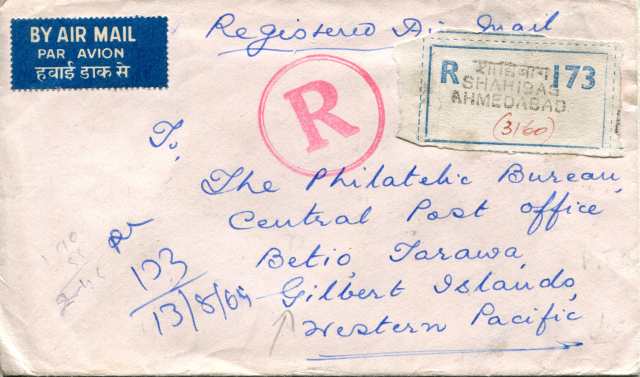 BY AIR MAIL
PAR AVION
हवाई डाक से
Registered Air Mail
R 173
शाहिबाग
SHAHIBAG
AHMEDABAD
(3/60)
R
To,
The Philatelic Bureau,
Central Post office
Betio, Tarawa,
Gilbert Islands,
Western Pacific
173
13/8/69